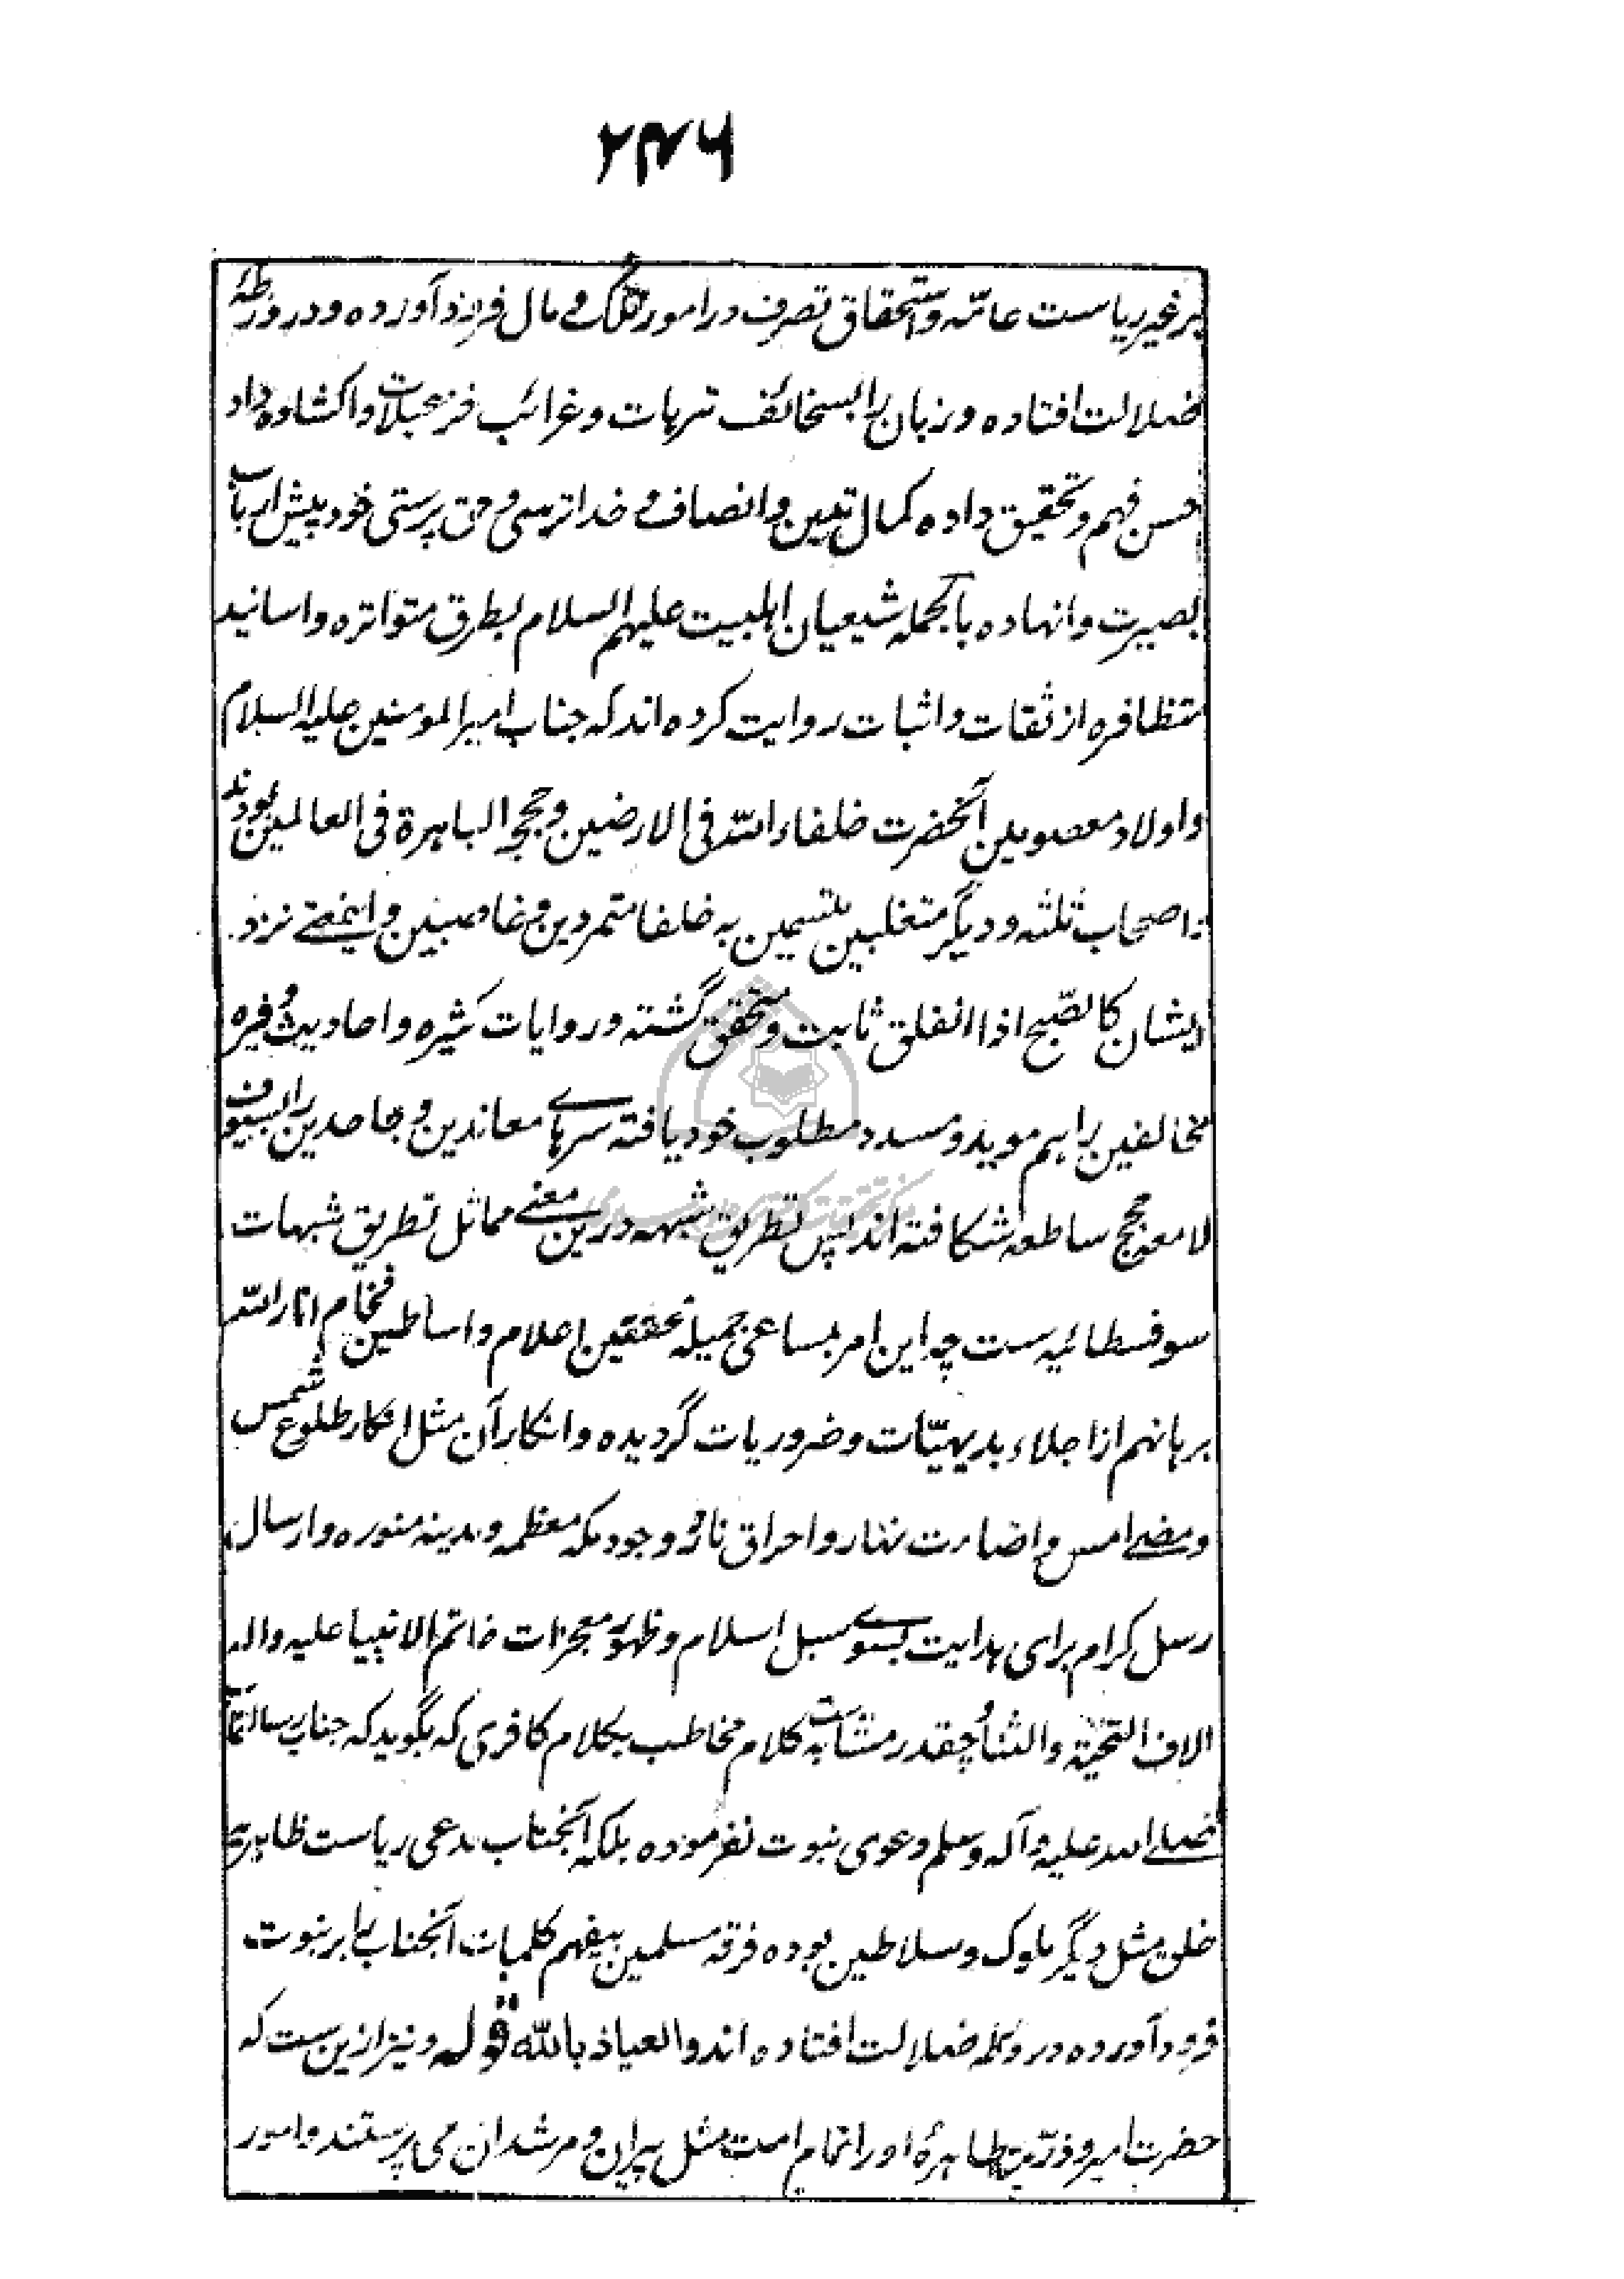 ۲۴۶
بر غیر ریاست عامّه و استحقاق تصرف در امور ملک و مال فرود آورده و در ورطهٔ
ضلالت افتاده و زبان را بسخائف ترهات و غرائب خزعبلات واکشاده داد
حسن فهم و تحقیق داده کمال تدین و انصاف و خدا ترسی و حق پرستی خود پیش ارباب
بصیرت وانهاده بالجمله شیعیان اهلبیت علیهم السلام بطرق متواتره و اسانید
متظافره از ثقات و اثبات روایت کرده اند که جناب امیر المومنین علیه السلام
و اولاد معصومین آنحضرت خلفاء الله فی الارضین و حجج الباهرة فی العالمین بودند
و اصحاب ثلثه و دیگر متغلبین متسمین به خلفا متمردین و غاصبین و اینمعنے نزد
ایشان کالصّبح اذا انفلق ثابت و متحقق گشته و روایات کثیره و احادیث وفیره
مخالفین را هم موید و مسدد مطلوب خود یافته سرهاے معاندین و جاحدین را بسیوف
لامعه حجج ساطعه شکافته اند پس تطریق شبهه درین معنے مماثل تطریق شبهات
سوفسطائیه ست چه این امر بمساعی جمیله محققین اعلام و اساطین فخام انار الله
برهانهم از اجلاء بدیهیّات و ضروریات گردیده و انکار آن مثل انکار طلوع شمس
و مضے امس و اضاءت نهار و احراق نار و وجود مکه معظمه و مدینه منوره و ارسال
رسل کرام برای هدایت بسوے سبل اسلام و ظهور معجزات خاتم الانبیا علیه و اله
الاف التحیّة و الثناُ چقدر مشابهت کلام مخاطب بکلام کافری که بگوید که جناب رسالتمآب
صلے الله علیه و آله و سلم دعوی نبوت نفرموده بلکه آنجناب مدعی ریاست ظاهری
خلق مثل دیگر ملوک و سلاطین بوده فرقه مسلمین بیفهم کلمات آنجناب را بر نبوت
فرود آورده در وحله ضلالت افتاده اند و العیاذ بالله قوله و نیز ازین ست که
حضرت امیر و ذرّیت طاهرهٔ او را تمام امت مثل پیران و مرشدان می پرستند و امور